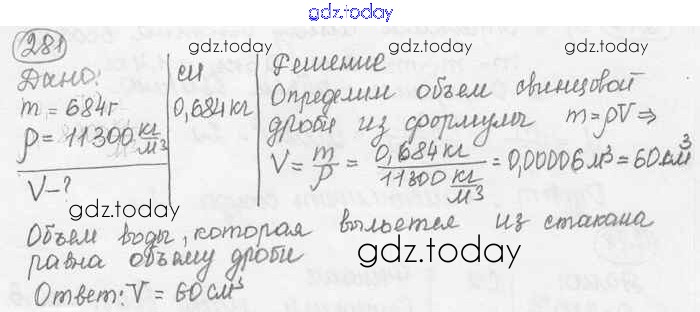 gdz.today
281
gdz.today
gdz.today
Дано:
СИ
Решение
m = 684г
0,684кг
Определим объем свинцовой
дроби из формулы m = ρV ⇒
ρ = 11300 кг/м³
V = m/ρ = 0,684кг / 11300 кг/м³ = 0,00006м³ = 60см³
V - ?
gdz.today
Объем воды, которая выльется из стакана
равна объему дроби
gdz.today
Ответ: V = 60см³